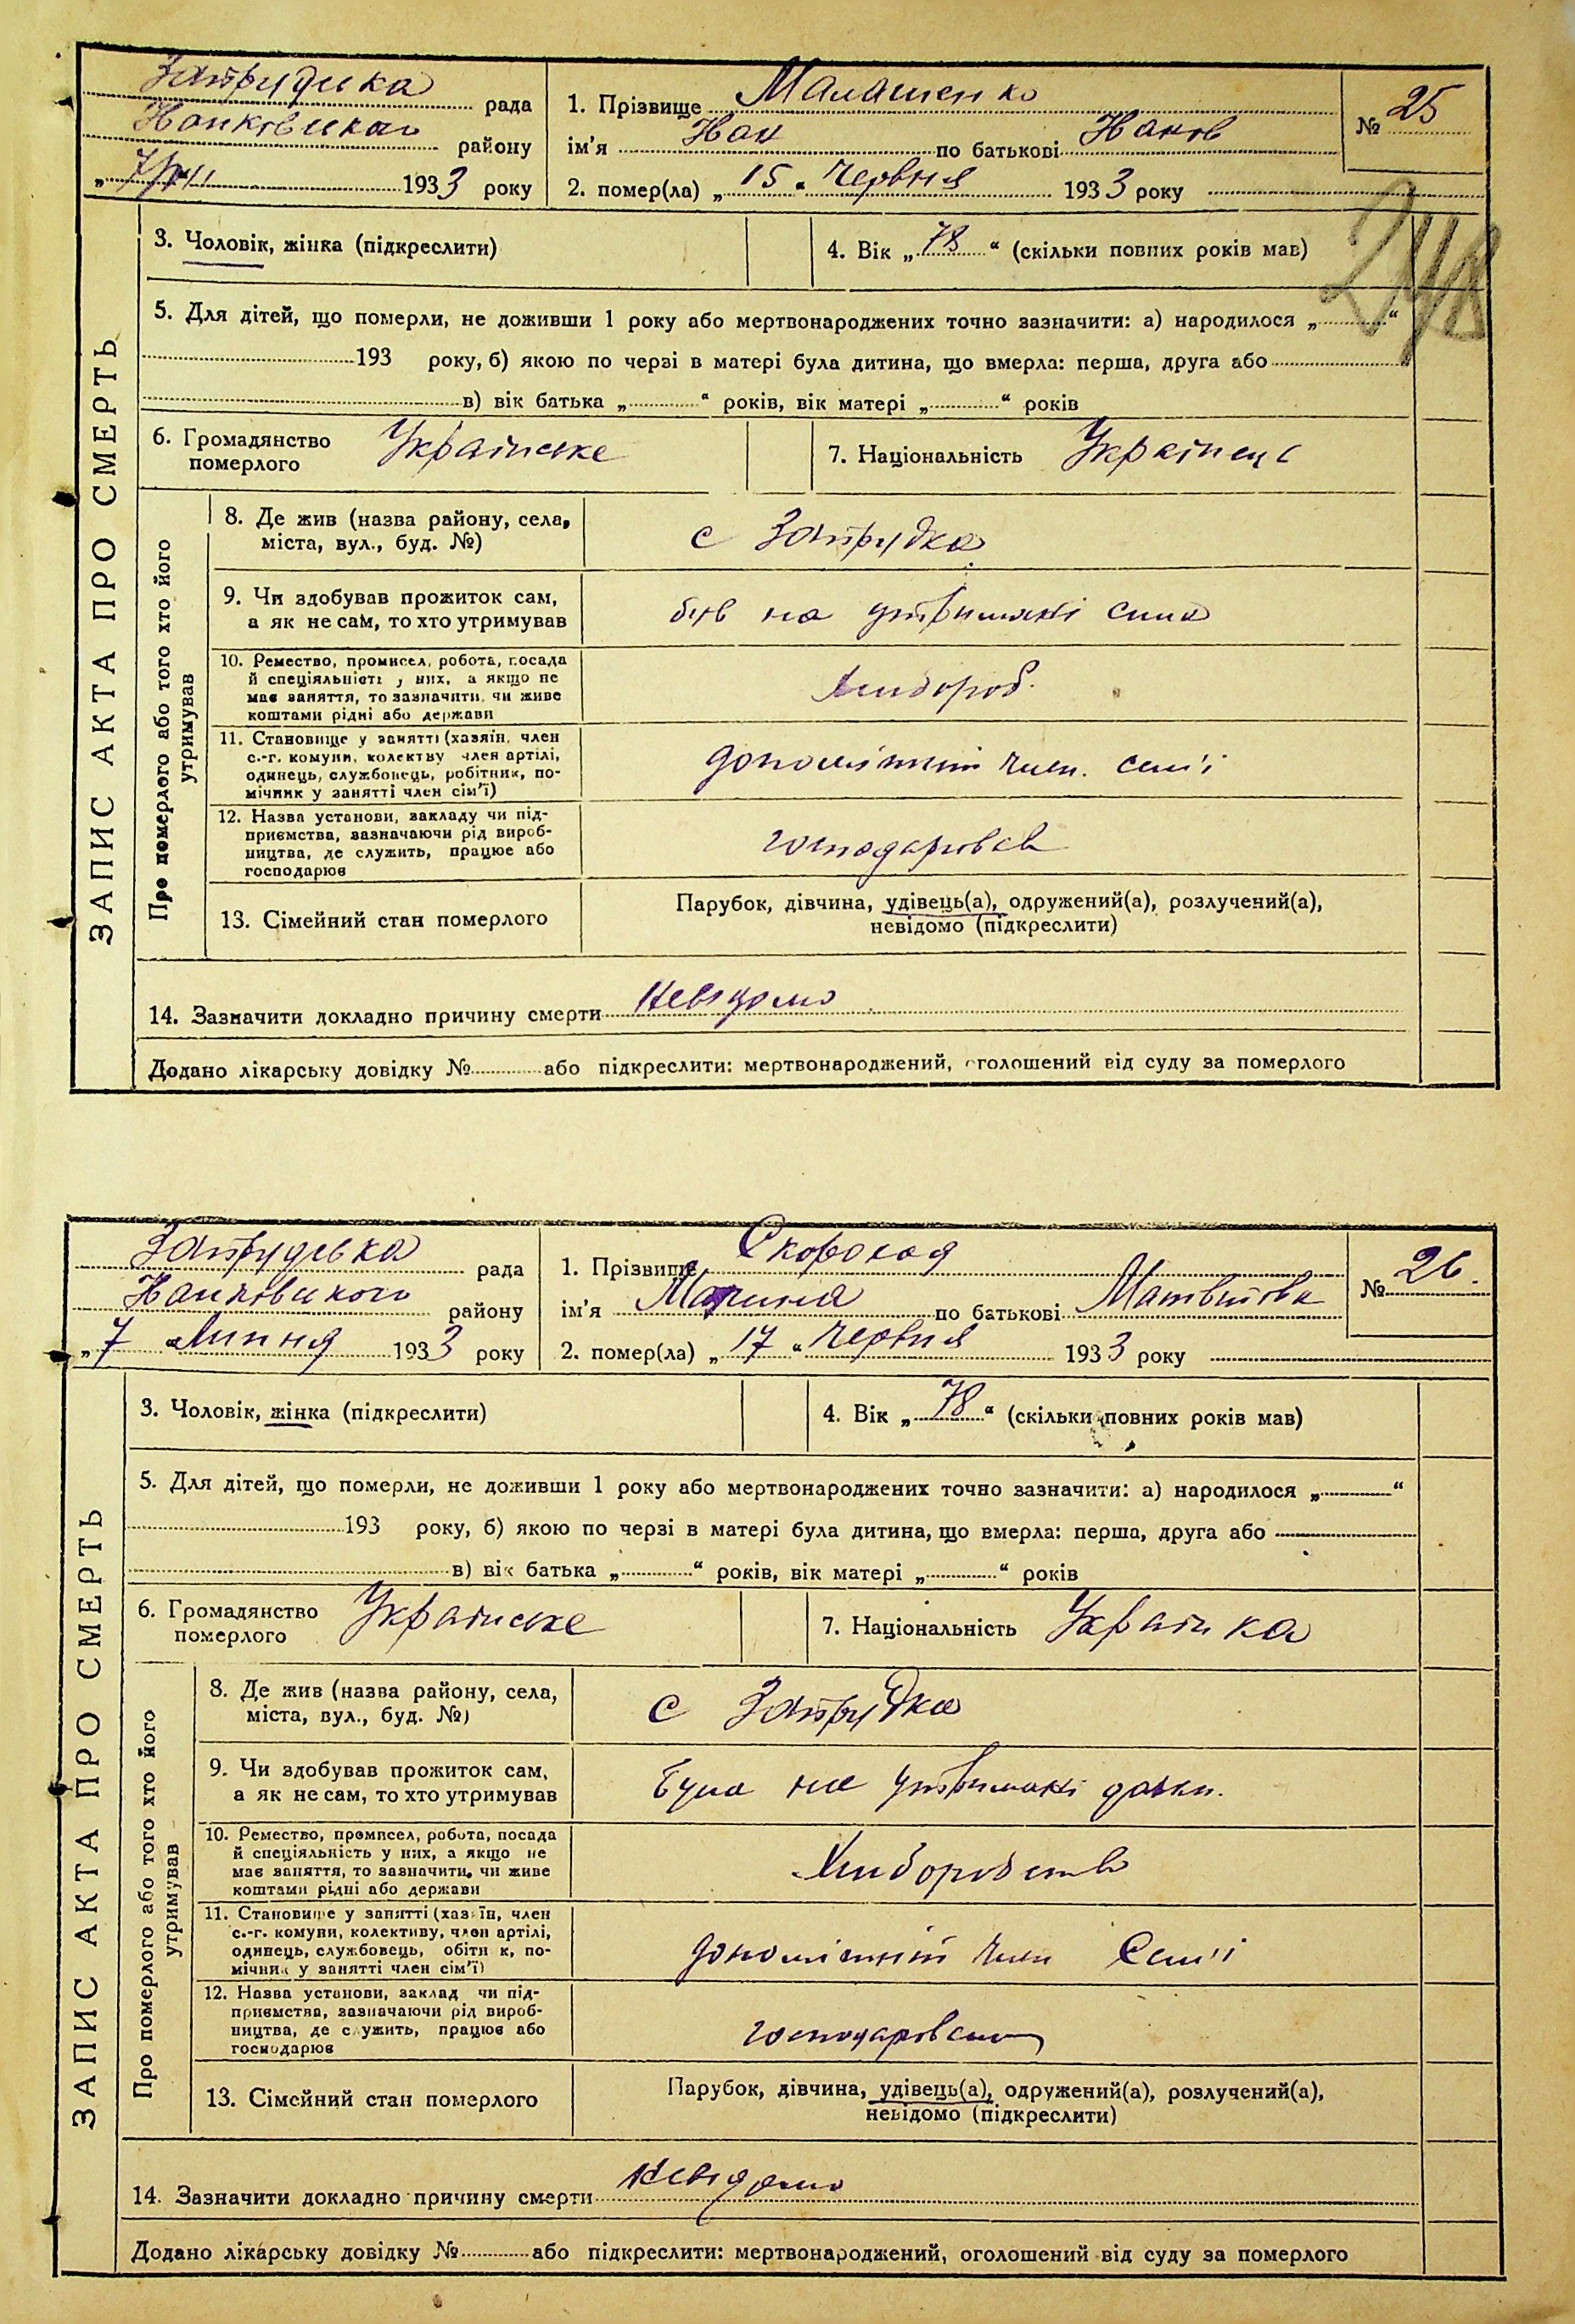 Затрудська рада
району
"7/VII 1933 року
1. Прізвище Малашенко
ім'я по батькові
2. помер(ла) „ 15 “ Червня 1933 року
№ 25
248
ЗАПИС АКТА ПРО СМЕРТЬ
3. Чоловік, жінка (підкреслити)
4. Вік „ 78 “ (скільки повних років мав)
5. Для дітей, що померли, не доживши 1 року або мертвонароджених точно зазначити: а) народилося „ “
193 року, б) якою по черзі в матері була дитина, що вмерла: перша, друга або
в) вік батька „ “ років, вік матері „ “ років
6. Громадянство
померлого Українське
7. Національність Українець
Про померлого або того хто його
утримував
8. Де жив (назва району, села,
міста, вул., буд. №)
с Затрудка
9. Чи здобував прожиток сам,
а як не сам, то хто утримував
був на утриманні сина
10. Ремество, промисел, робота, посада
й спеціяльність у них, а якщо не
має заняття, то зазначити, чи живе
коштами рідні або держави
Хлібороб.
11. Становище у занятті (хазяїн, член
с.-г. комуни, колективу член артілі,
одинець, службовець, робітник, по-
мічник у занятті член сім'ї)
допоміжний член. сем'ї
12. Назва установи, закладу чи під-
приємства, зазначаючи рід вироб-
ництва, де служить, працює або
господарює
господарював
13. Сімейний стан померлого
Парубок, дівчина, удівець(а), одружений(а), розлучений(а),
невідомо (підкреслити)
14. Зазначити докладно причину смерти невідомо
Додано лікарську довідку № або підкреслити: мертвонароджений, оголошений від суду за померлого
Затрудська рада
району
„ 7 “ Липня 1933 року
1. Прізвище Скороход
ім'я по батькові Матвіївна
2. помер(ла) „ 17 “ Червня 1933 року
№ 26.
ЗАПИС АКТА ПРО СМЕРТЬ
3. Чоловік, жінка (підкреслити)
4. Вік „ 78 “ (скільки повних років мав)
5. Для дітей, що померли, не доживши 1 року або мертвонароджених точно зазначити: а) народилося „ “
193 року, б) якою по черзі в матері була дитина, що вмерла: перша, друга або
в) вік батька „ “ років, вік матері „ “ років
6. Громадянство
померлого Українське
7. Національність Українка
Про померлого або того хто його
утримував
8. Де жив (назва району, села,
міста, вул., буд. №)
с Затрудка
9. Чи здобував прожиток сам,
а як не сам, то хто утримував
Була на утриманні дочки.
10. Ремество, промисел, робота, посада
й спеціяльність у них, а якщо не
має заняття, то зазначити, чи живе
коштами рідні або держави
Хліборобство
11. Становище у занятті (хазяїн, член
с.-г. комуни, колективу, член артілі,
одинець, службовець, робітник, по-
мічник у занятті член сім'ї)
допоміжний член Сем'ї
12. Назва установи, заклад чи під-
приємства, зазначаючи рід вироб-
ництва, де служить, працює або
господарює
13. Сімейний стан померлого
Парубок, дівчина, удівець(а), одружений(а), розлучений(а),
невідомо (підкреслити)
14. Зазначити докладно причину смерти невідомо
Додано лікарську довідку № або підкреслити: мертвонароджений, оголошений від суду за померлого